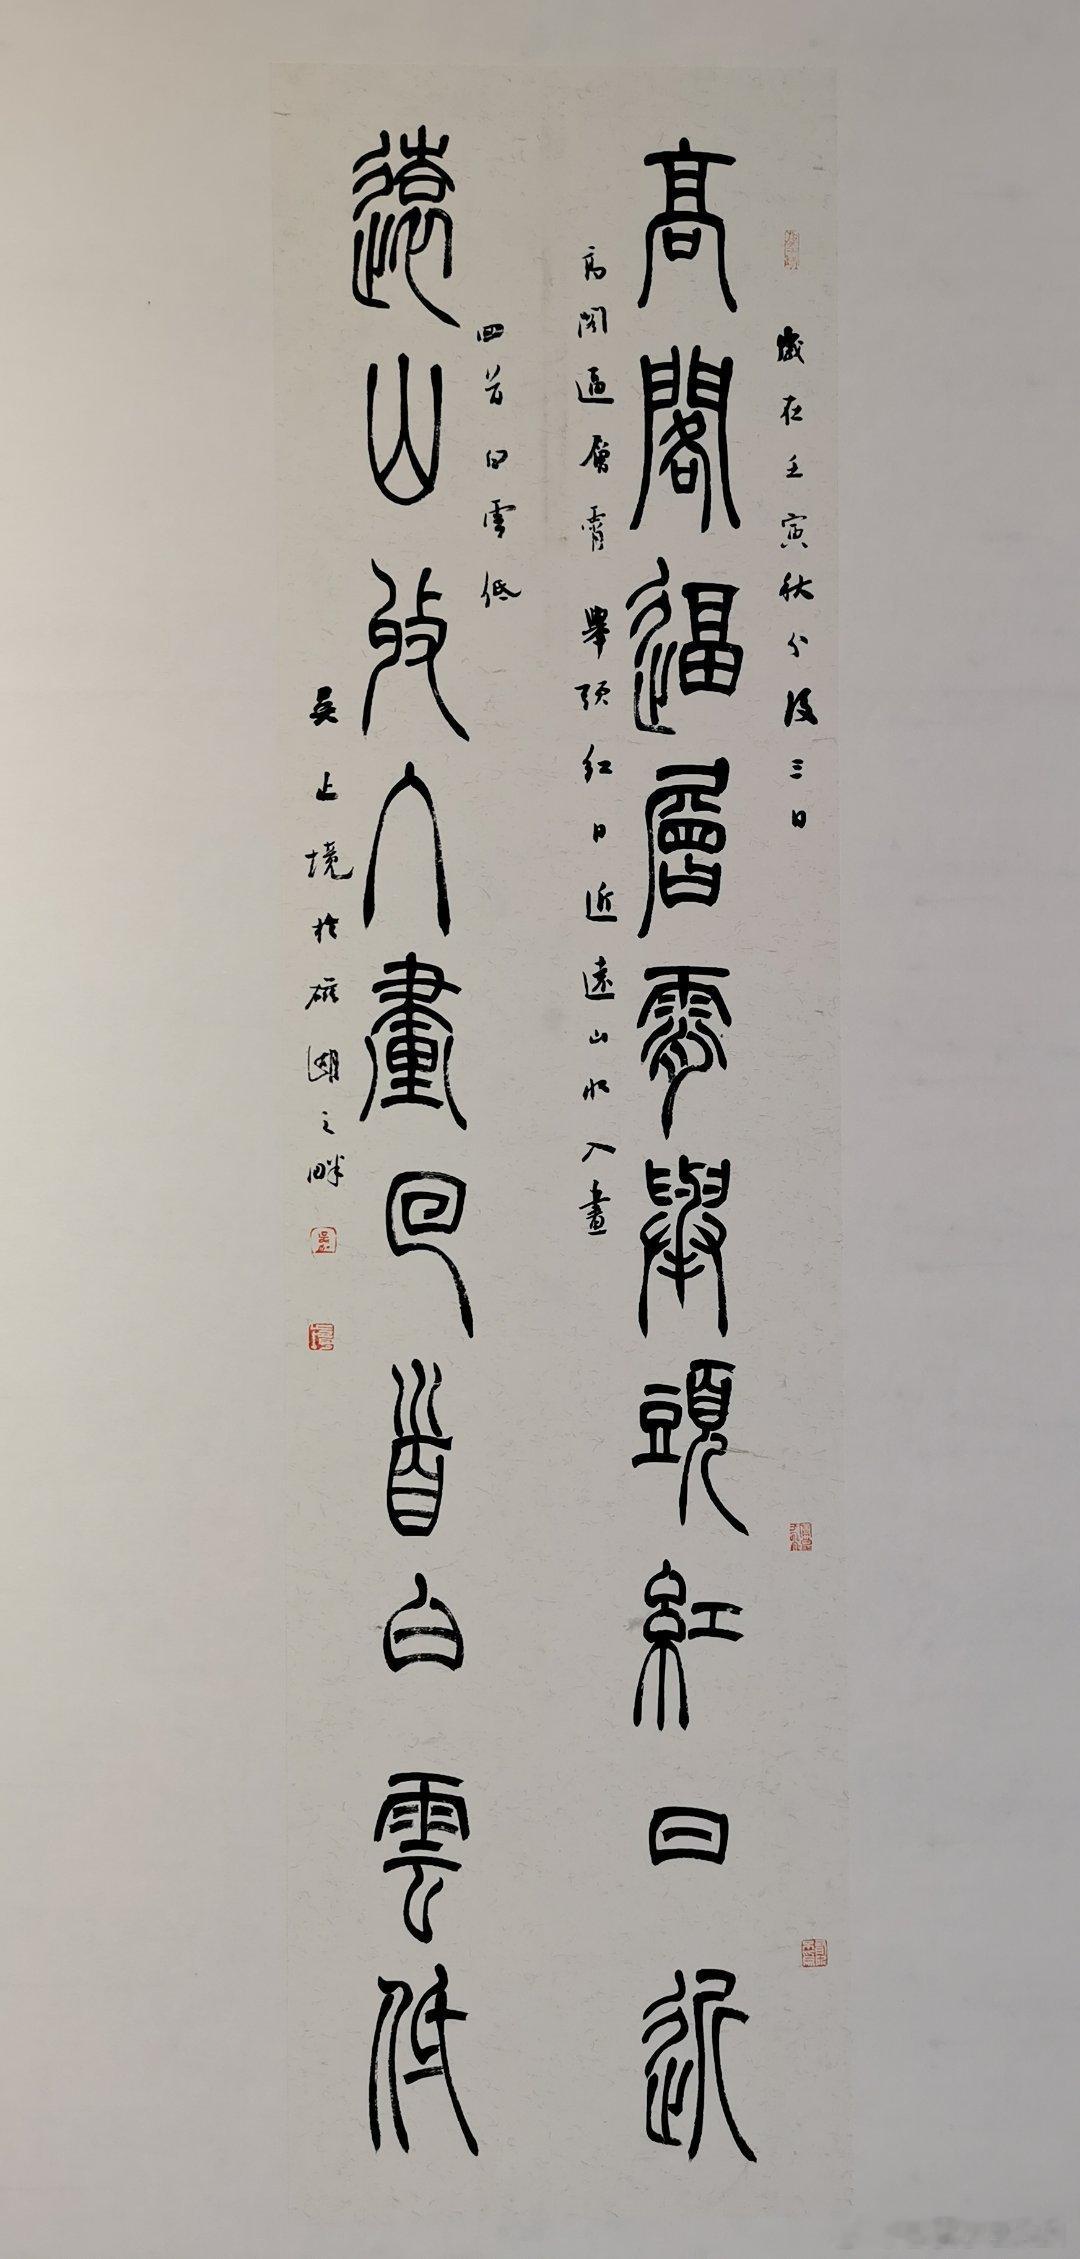 歲在壬寅秋分後三日
高閣逼層霄舉頭紅日近
高閣逼層霄舉頭紅日近遠山收入畫
回首白雲低
遠山收入畫回首白雲低
吳止境於磁湖之畔